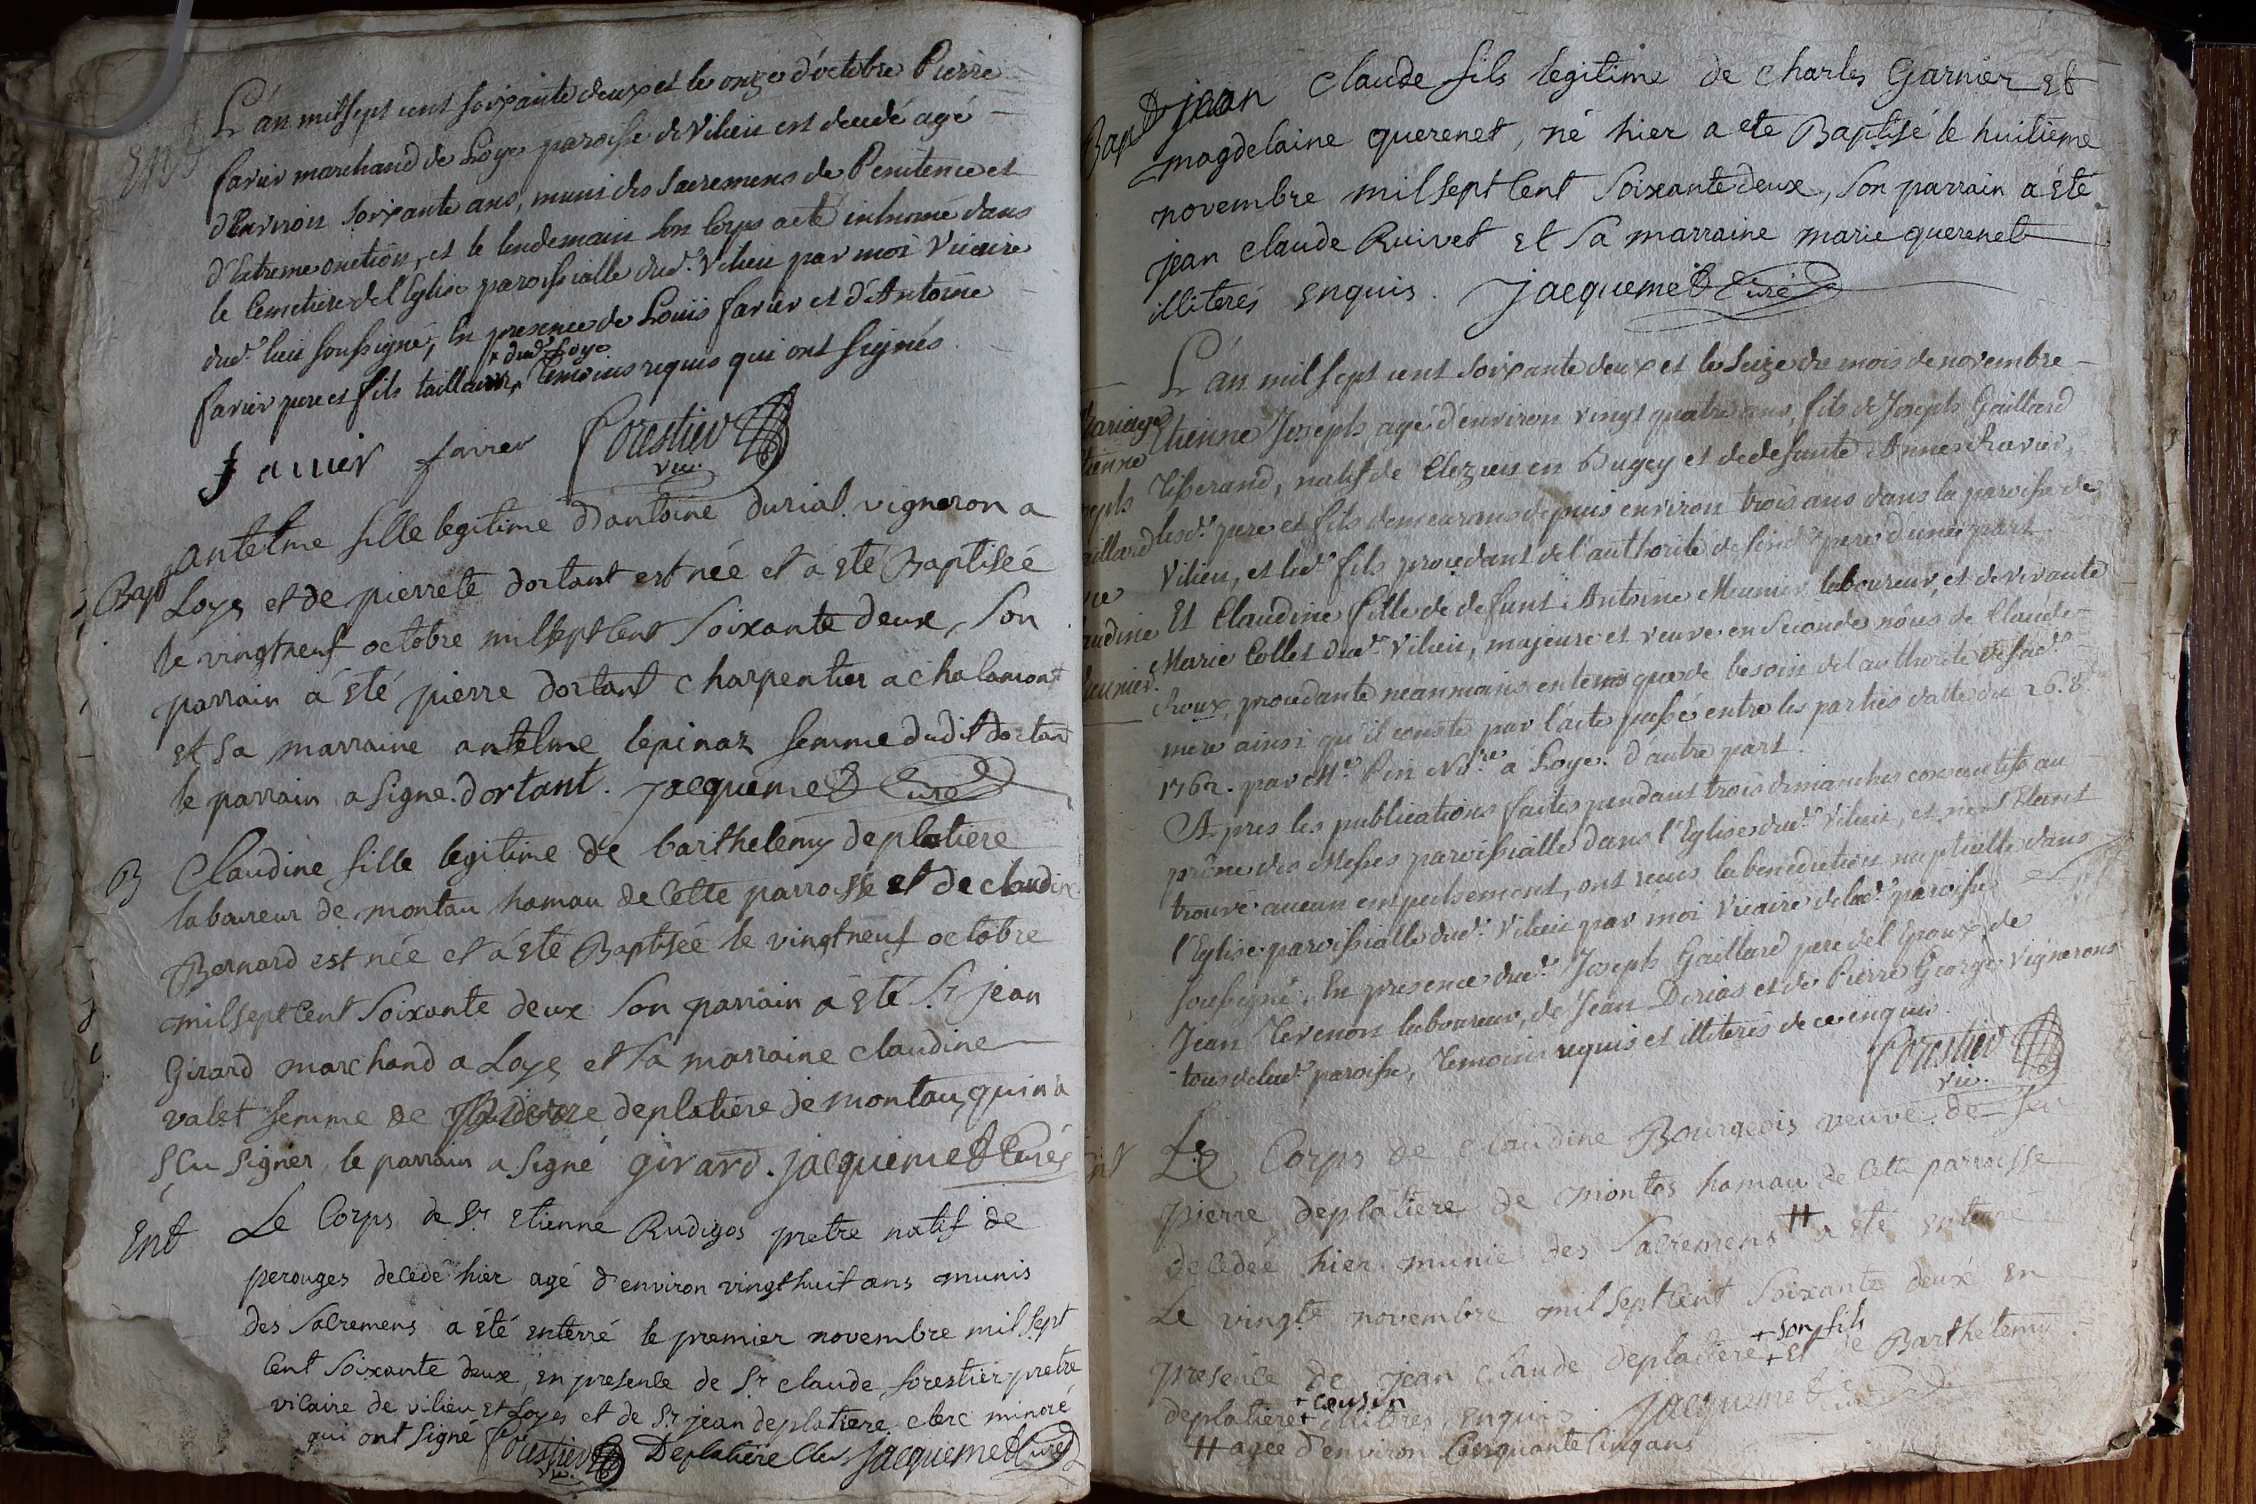 Ent
L'án mil sept cent soixante deux et le onze d'octobre Pierre
favier marchand de Loye paroisse de Vilieu est decedé agé
d'Environ soixante ans, muni des sacremens de Penitence et
d'Extreme onction, et le lendemain son Corps a eté inhumé dans
le Cemetiere de l'Eglise paroissialle dud.t Vilieu par moi Vicaire
dud.t lieu soussigné, En presence de Louïs favier et d'Antoine
+ dud.t Loye
favier pere et fils tailleurs, temoins requis qui ont signés.
favier favier Forestier
vic.
Bapt
antelme fille legitime D'antoine durial vigneron a
Loyes et de pierrete dortant est née et a eté Baptisée
le vingtneuf octobre milseptCent Soixante deux, Son
parrain a été pierre dortant charpentier a chalamont
et sa marraine antelme lepinaz femme dudit dortant
le parrain a signé. dortant. Jacquemet Curé
B
Claudine fille legitime de barthelemy deplatiere
laboureur de montau hamau de Cette parroisse et de claudine
Bernard est née et a eté Baptisée le vingtneuf octobre
milseptCent Soixante deux Son parrain a eté S.r jean
Girard marchand a Loyes et sa marraine claudine
valet femme de deplatiere de montau, qui n'a
sçu signer, le parrain a signé girard. jacquemet Curé
Ent
Le Corps de S.r Etienne Rudigos pretre natif de
perouges decedé hier agé d'environ vingthuit ans munis
des Sacremens a été enterré le premier novembre mil sept
Cent Soixante deux, en presence de S.r claude forestier pretre
vicaire de vilieu et Loyes et de S.r jean deplatiere clerc minoré
qui ont signé Forestier vic. Deplatiere Clerc Jacquemet Curé
Bapt
jean Claude fils legitime de Charles Garnier et
magdelaine querenet, né hier a eté Baptisé le huitieme
novembre milseptCent Soixante deux, Son parrain a été
jean claude Ruivet et Sa marraine marie querenet
illiterés enquis. Jacquemet Curé
Mariage
Etienne
Joseph
Gaillard
Claudine
Meunier.
L'án mil sept cent soixante deux et le seize du mois de novembre
Etienne Joseph, agé d'environ vingt quatre ans, fils de Joseph Gaillard
Tisserand, natif de en Bugey et de defunte Anne Ravier,
lesd.ts pere et fils demeurans depuis environ trois ans dans la paroisse de
Vilieu, et led.t fils procedant de l'authorité de sond.t pere d'une part
Et Claudine fille de defunt Antoine Meunier laboureur, et de vivante
Marie Collet dud.t Vilieu, majeure et veuve en secondes nôces de Claude
Roux, procedante neanmoins entems que de besoin de l'authorité de sad.te
mere ainsi qu'il conste par l'acte passé entre les parties datté du 26. 8.bre
1762. par M.e Pin N.re a Loye. d'autre part.
Apres les publications faites pendant trois dimanches consecutifs au
prône des Messes paroissialle dans l'Eglise dud.t Vilieu, et rien s'étant
trouvé aucun empechement, ont recus la benediction nuptialle dans
l'Eglise paroissialle dud.t Vilieu par moi Vicaire de lad.te paroisse
soussigné, En presence dud.t Joseph Gaillard pere de l'Epoux, de
Jean Tevenon laboureur, de Jean Durias et de Pierre George vignerons
tous de lad.te paroisse, temoins requis et illiterés de ce enquis.
Forestier
vic.
Ent
Le Corps de Claudine Bourgeois veuve de feu
pierre deplatiere de montos hamau de Cette parroisse
decedée hier munie des Sacremens # a été enterrée
Le vingt novembre milseptCent Soixante deux en
presence de jean claude deplatiere + son fils + et de Barthelemy
deplatiere + cousin + illiterés enquis. Jacquemet Curé
# agée d'environ Cinquante Cinq ans